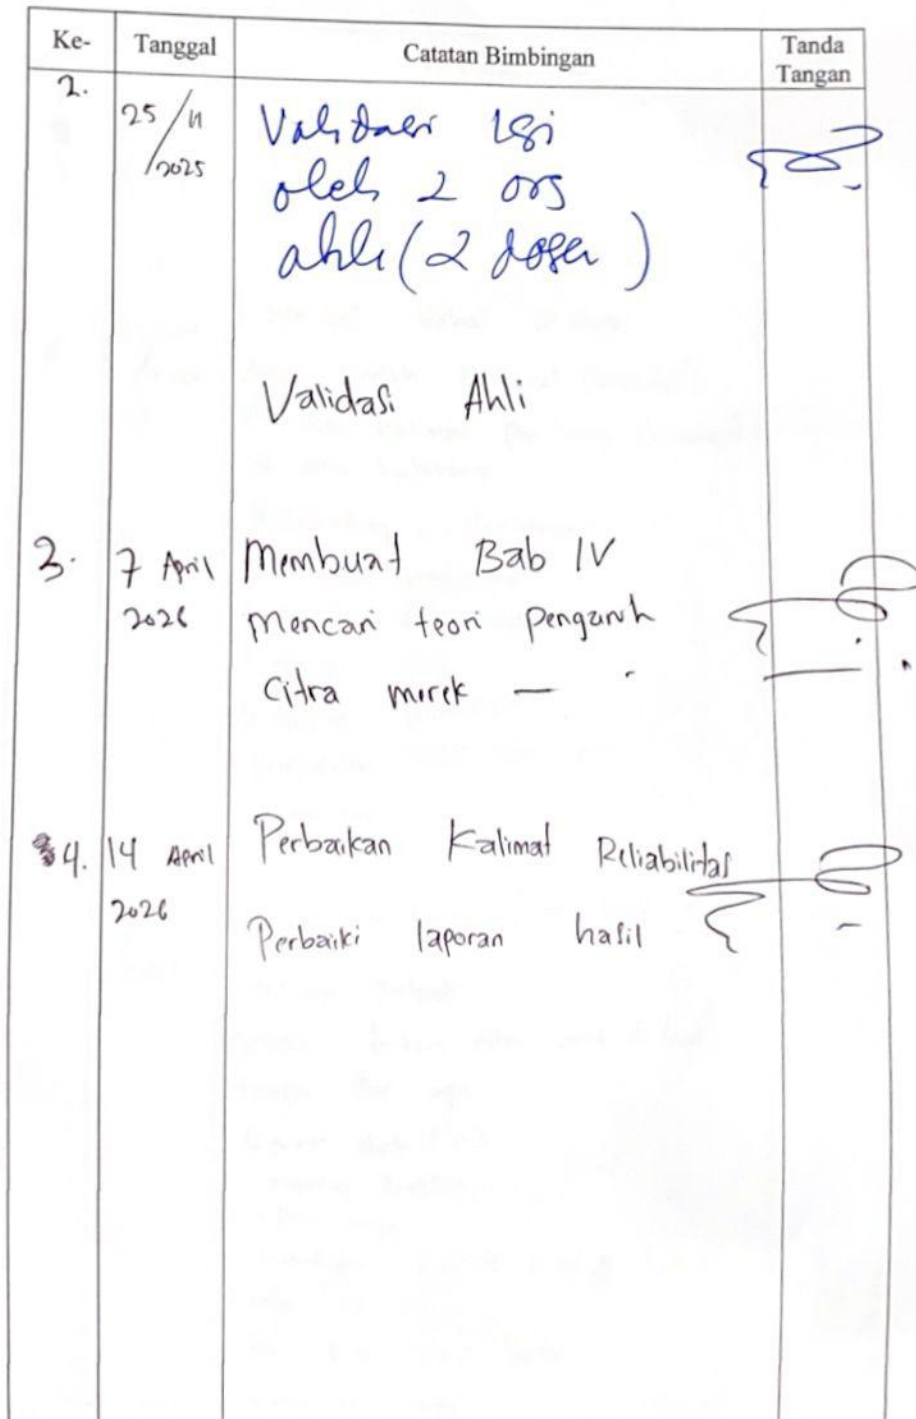 Ke- Tanggal Catatan Bimbingan Tanda Tangan
2. 25/11/2025 Validasi Isi
oleh 2 org
ahli (2 dosen)
Validasi Ahli
3. 7 April 2026 Membuat Bab IV
Mencari teori pengaruh
Citra merek —
4. 14 April 2026 Perbaikan Kalimat Reliabilitas
Perbaiki laporan hasil